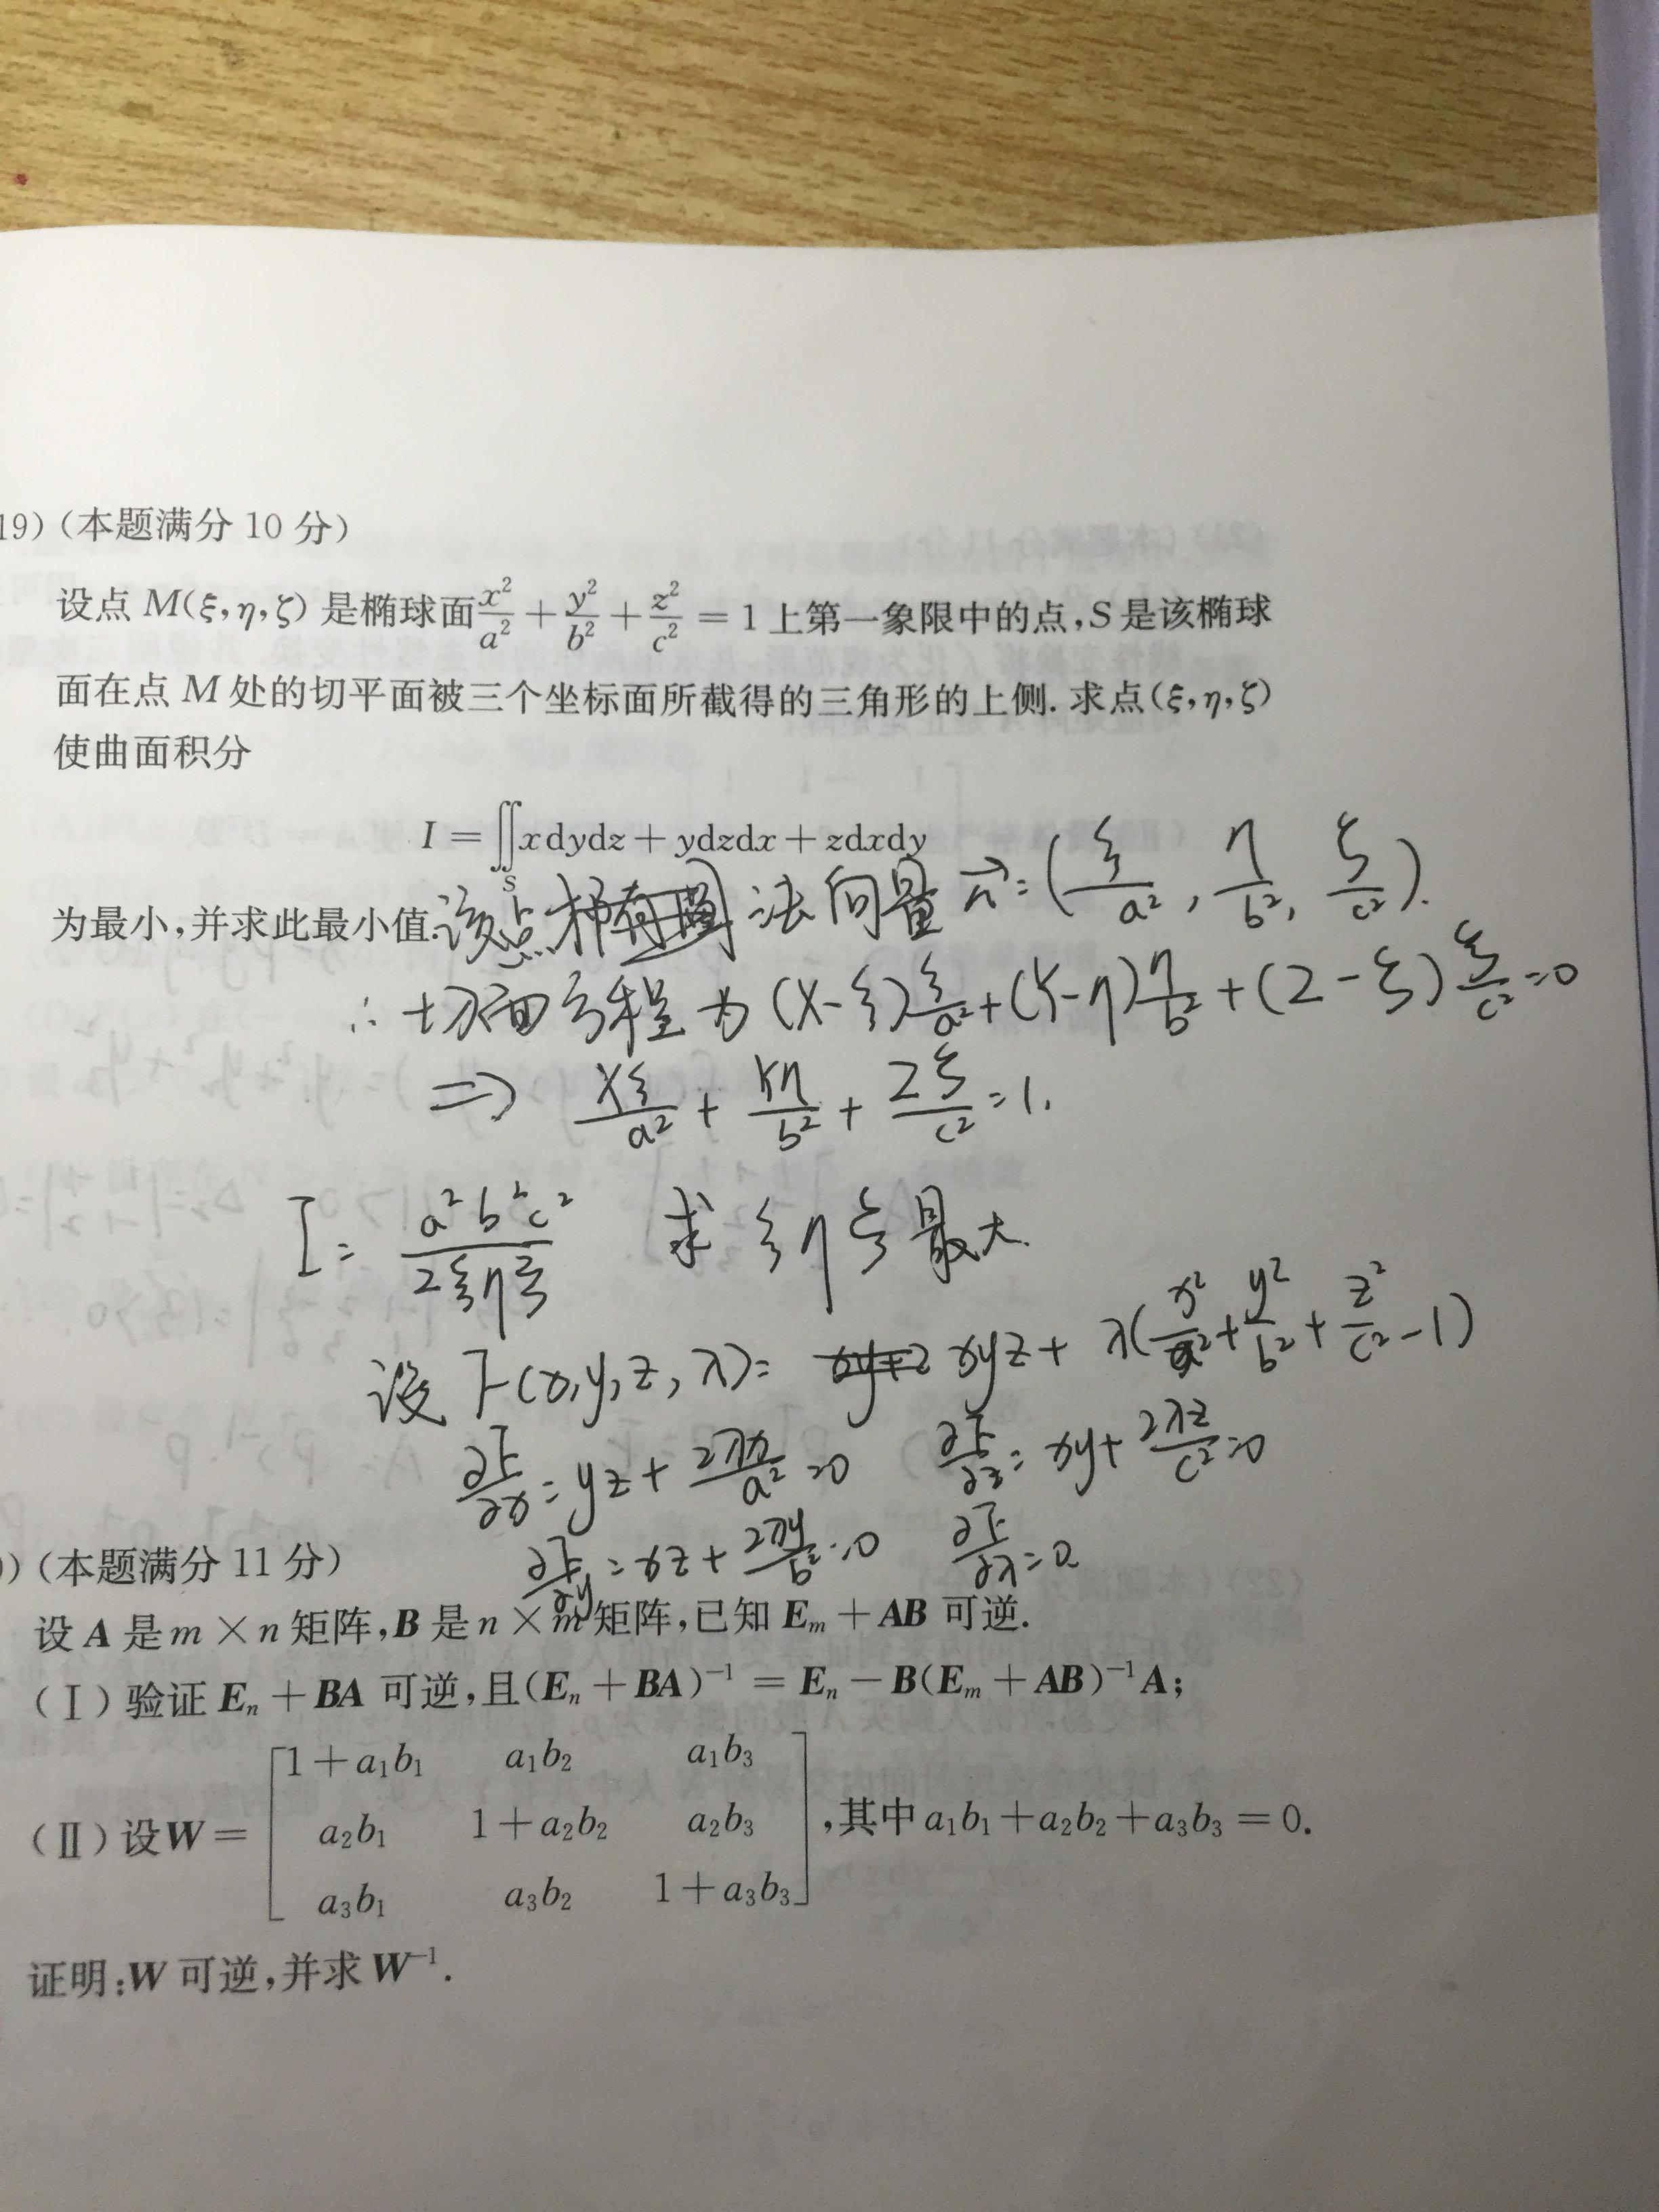 19) (本题满分 10 分)
设点 M(ξ,η,ζ) 是椭球面 x²/a² + y²/b² + z²/c² = 1 上第一象限中的点,S 是该椭球
面在点 M 处的切平面被三个坐标面所截得的三角形的上侧. 求点(ξ,η,ζ)
使曲面积分
I = ∬_S xdydz + ydzdx + zdxdy
为最小,并求此最小值.
该点椭圆 法向量 n⃗ = (ξ/a², η/b², ζ/c²).
∴ 切面方程为 (X-ξ)ξ/a² + (Y-η)η/b² + (Z-ζ)ζ/c² = 0
=> Xξ/a² + Yη/b² + Zζ/c² = 1.
I = a²b²c²/2ξηζ 求 ξηζ最大.
设 F(x,y,z,λ) = xyz + λ(x²/a² + y²/b² + z²/c² - 1)
∂F/∂x = yz + 2λx/a² = 0 ∂F/∂z = xy + 2λz/c² = 0
∂F/∂y = xz + 2λy/b² = 0 ∂F/∂λ = 0
) (本题满分 11 分)
设 A 是 m × n 矩阵,B 是 n × m 矩阵,已知 Eₘ + AB 可逆.
(Ⅰ) 验证 Eₙ + BA 可逆,且(Eₙ + BA)⁻¹ = Eₙ - B(Eₘ + AB)⁻¹A;
(Ⅱ) 设 W = [1+a₁b₁ a₁b₂ a₁b₃
a₂b₁ 1+a₂b₂ a₂b₃
a₃b₁ a₃b₂ 1+a₃b₃] ,其中 a₁b₁+a₂b₂+a₃b₃ = 0.
证明:W 可逆,并求 W⁻¹.